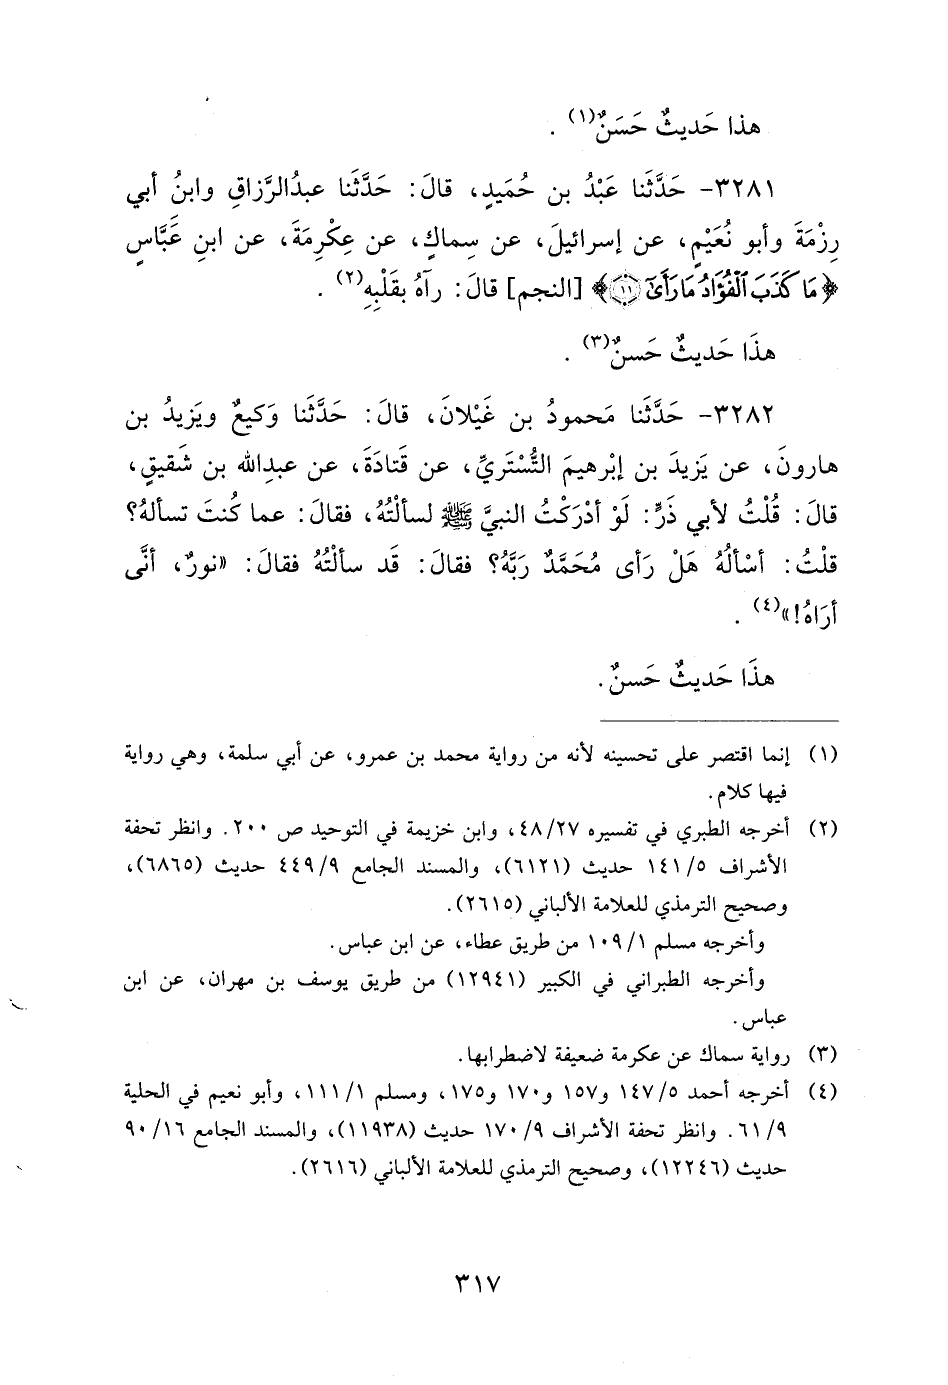 هذا حَديثٌ حَسَنٌ(١) .
٣٢٨١- حَدَّثَنا عَبْدُ بن حُمَيدٍ، قالَ: حَدَّثَنا عبدُالرَّزاقِ وابنُ أبي
رِزْمَةَ وأبو نُعَيْمٍ، عن إسرائيلَ، عن سِماكٍ، عن عِكْرِمَةَ، عن ابنِ عَبَّاسٍ
﴿مَا كَذَبَ ٱلْفُؤَادُ مَا رَأَىٰٓ ١١﴾ [النجم] قالَ: رآهُ بقَلْبِهِ(٢) .
هذَا حَديثٌ حَسنٌ(٣) .
٣٢٨٢- حَدَّثَنا مَحمودُ بن غَيْلانَ، قالَ: حَدَّثَنا وَكيعٌ ويَزيدُ بن
هارونَ، عن يَزيدَ بن إبْرهيمَ التُّسْتَريِّ، عن قَتادَةَ، عن عبدِالله بن شَقيقٍ،
قالَ: قُلْتُ لأبي ذَرٍّ: لَوْ أدْرَكْتُ النبيَّ ﷺ لسألْتُهُ، فقالَ: عما كُنتَ تسألهُ؟
قلْتُ: أسْألُهُ هَلْ رَأى مُحَمَّدٌ رَبَّهُ؟ فقالَ: قَد سألْتُهُ فقالَ: «نورٌ، أنَّى
أرَاهُ!»(٤) .
هذَا حَديثٌ حَسنٌ.
(١) إنما اقتصر على تحسينه لأنه من رواية محمد بن عمرو، عن أبي سلمة، وهي رواية
فيها كلام.
(٢) أخرجه الطبري في تفسيره ٤٨/٢٧، وابن خزيمة في التوحيد ص ٢٠٠. وانظر تحفة
الأشراف ١٤١/٥ حديث (٦١٢١)، والمسند الجامع ٤٤٩/٩ حديث (٦٨٦٥)،
وصحيح الترمذي للعلامة الألباني (٢٦١٥).
وأخرجه مسلم ١٠٩/١ من طريق عطاء، عن ابن عباس.
وأخرجه الطبراني في الكبير (١٢٩٤١) من طريق يوسف بن مهران، عن ابن
عباس.
(٣) رواية سماك عن عكرمة ضعيفة لاضطرابها.
(٤) أخرجه أحمد ١٤٧/٥ و١٥٧ و١٧٠ و١٧٥، ومسلم ١١١/١، وأبو نعيم في الحلية
٦١/٩. وانظر تحفة الأشراف ١٧٠/٩ حديث (١١٩٣٨)، والمسند الجامع ٩٠/١٦
حديث (١٢٢٤٦)، وصحيح الترمذي للعلامة الألباني (٢٦١٦).
٣١٧